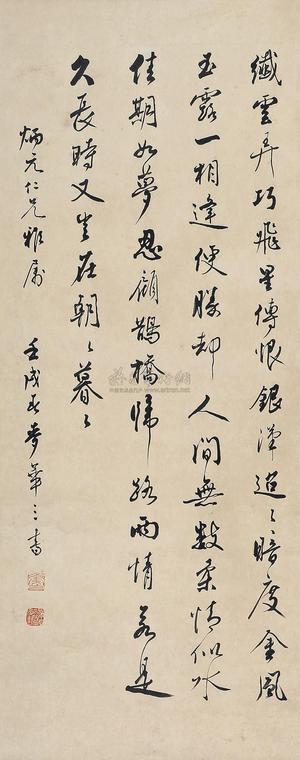 纖雲弄巧飛星傳恨銀漢迢〻暗度金風
玉露一相逢便勝却人間無數柔情似水
佳期如夢忍顧鵲橋歸路兩情若是
久長時又豈在朝〻暮〻
炳元仁兄雅屬
壬戌 三書